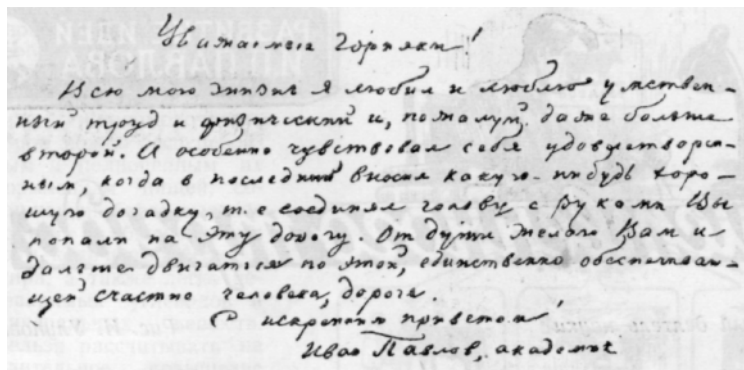 Уважаемые горняки!
Всю мою жизнь я любил и люблю умствен-
ный труд и физический и, пожалуй, даже больше
второй. А особенно чувствовал себя удовлетворен-
ным, когда в последний вносил какую-нибудь хоро-
шую догадку, т. е соединял голову с руками Вы
попали на эту дорогу. От души желаю Вам и
дальше двигаться по этой, единственно обеспечиваю-
щей счастие человека, дороге.
С искренним приветом,
Иван Павлов, академик
РАЗВИТИЕ ИДЕЙ
ПАВЛОВА